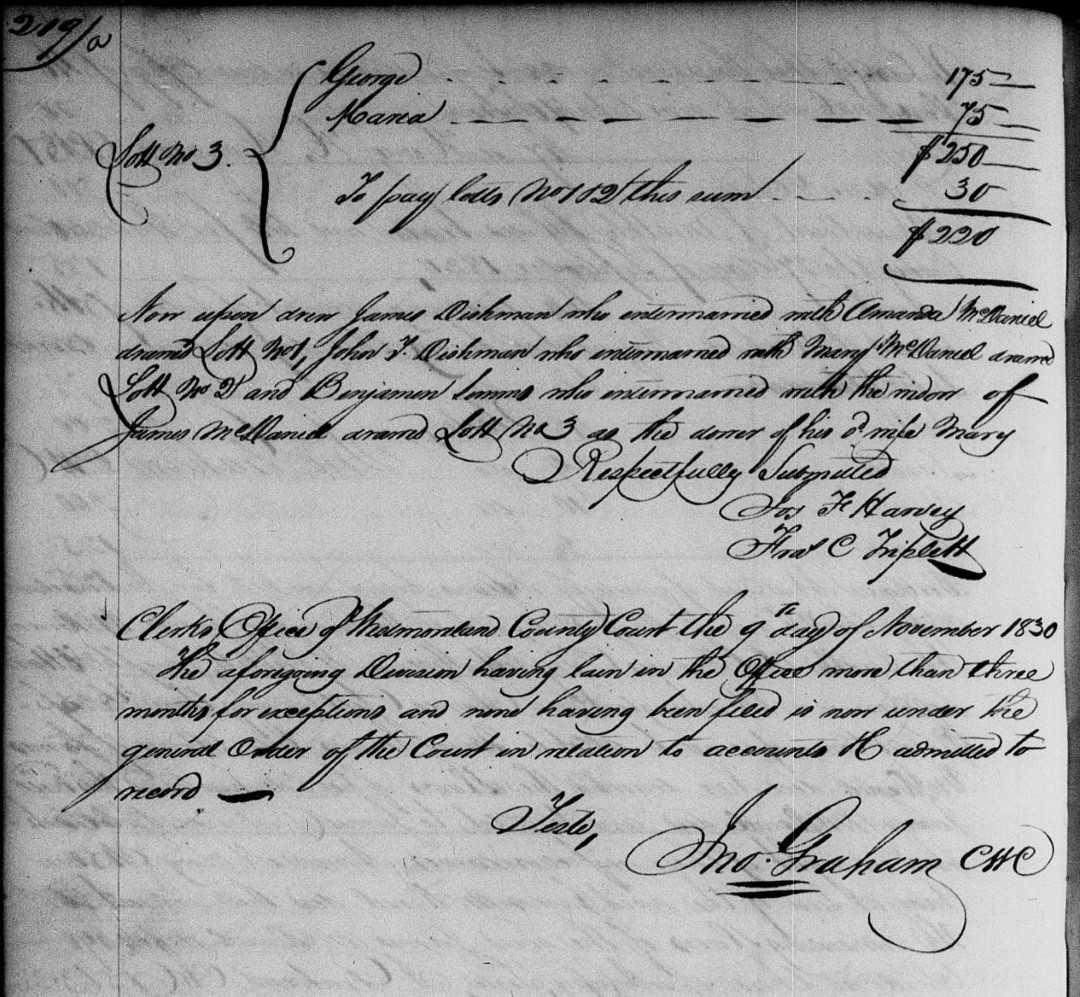 219/a
George 175
Maria 75
Lott No 3. $250
To pay lotts No 1 & 2 this sum 30
$220
Now upon drew James Dishman who intermarried with Amanda McDaniel
drawd Lott No1, John T. Dishman who intermarried with Mary McDaniel drawd
Lott No 2 and Benjamin Simms who intermarried with the widow of
James McDaniel drawd Lott No 3 as the dower of his sd wife Mary
Respectfully Submitted
Jos F Harvey
Fras C Triplett
Clerks Office of Westmoreland County Court the 9th day of November 1830
The aforegoing Division having lain in the Office more than three
months for exceptions and none having been filed is now under the
general Order of the Court in relation to accounts &C admitted to
record
Teste,
Jno. Graham CWC